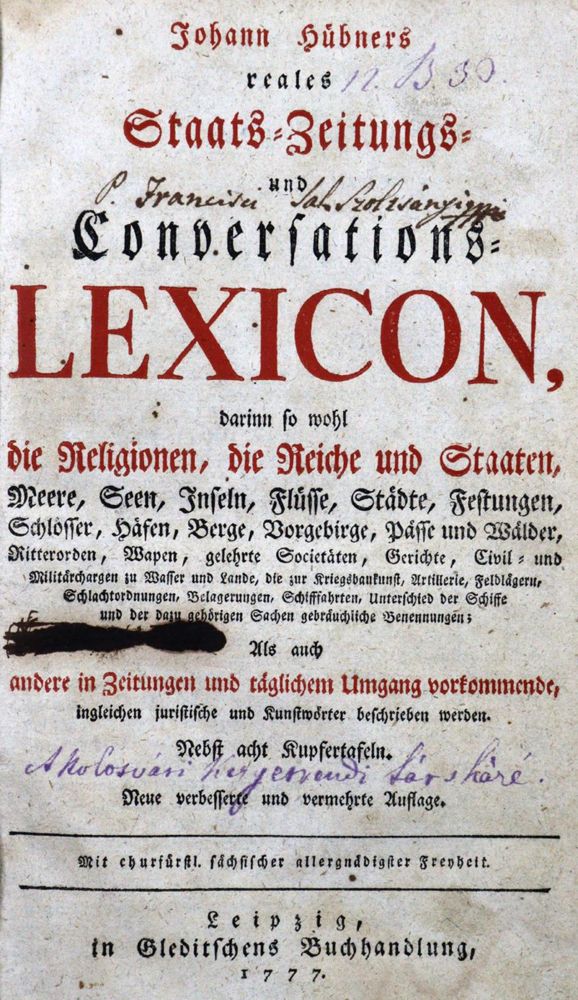 Johann Hübners
reales 12. B 30.
Staats-Zeitungs-
und
P. Francisci Sal.
Conversations-
LEXICON,
darinn so wohl
die Religionen, die Reiche und Staaten,
Meere, Seen, Inseln, Flüsse, Städte, Festungen,
Schlösser, Häfen, Berge, Vorgebirge, Pässe und Wälder,
Ritterorden, Wapen, gelehrte Societäten, Gerichte, Civil- und
Militärchargen zu Wasser und Lande, die zur Kriegsbaukunst, Artillerie, Feldlägern,
Schlachtordnungen, Belagerungen, Schifffahrten, Unterschied der Schiffe
und der dazu gehörigen Sachen gebräuchliche Benennungen;
Als auch
andere in Zeitungen und täglichem Umgang vorkommende,
ingleichen juristische und Kunstwörter beschrieben werden.
Nebst acht Kupfertafeln.
A Kolosvári
Neue verbesserte und vermehrte Auflage.
Mit churfürstl. sächsischer allergnädigster Freyheit.
Leipzig,
in Gleditschens Buchhandlung,
1777.